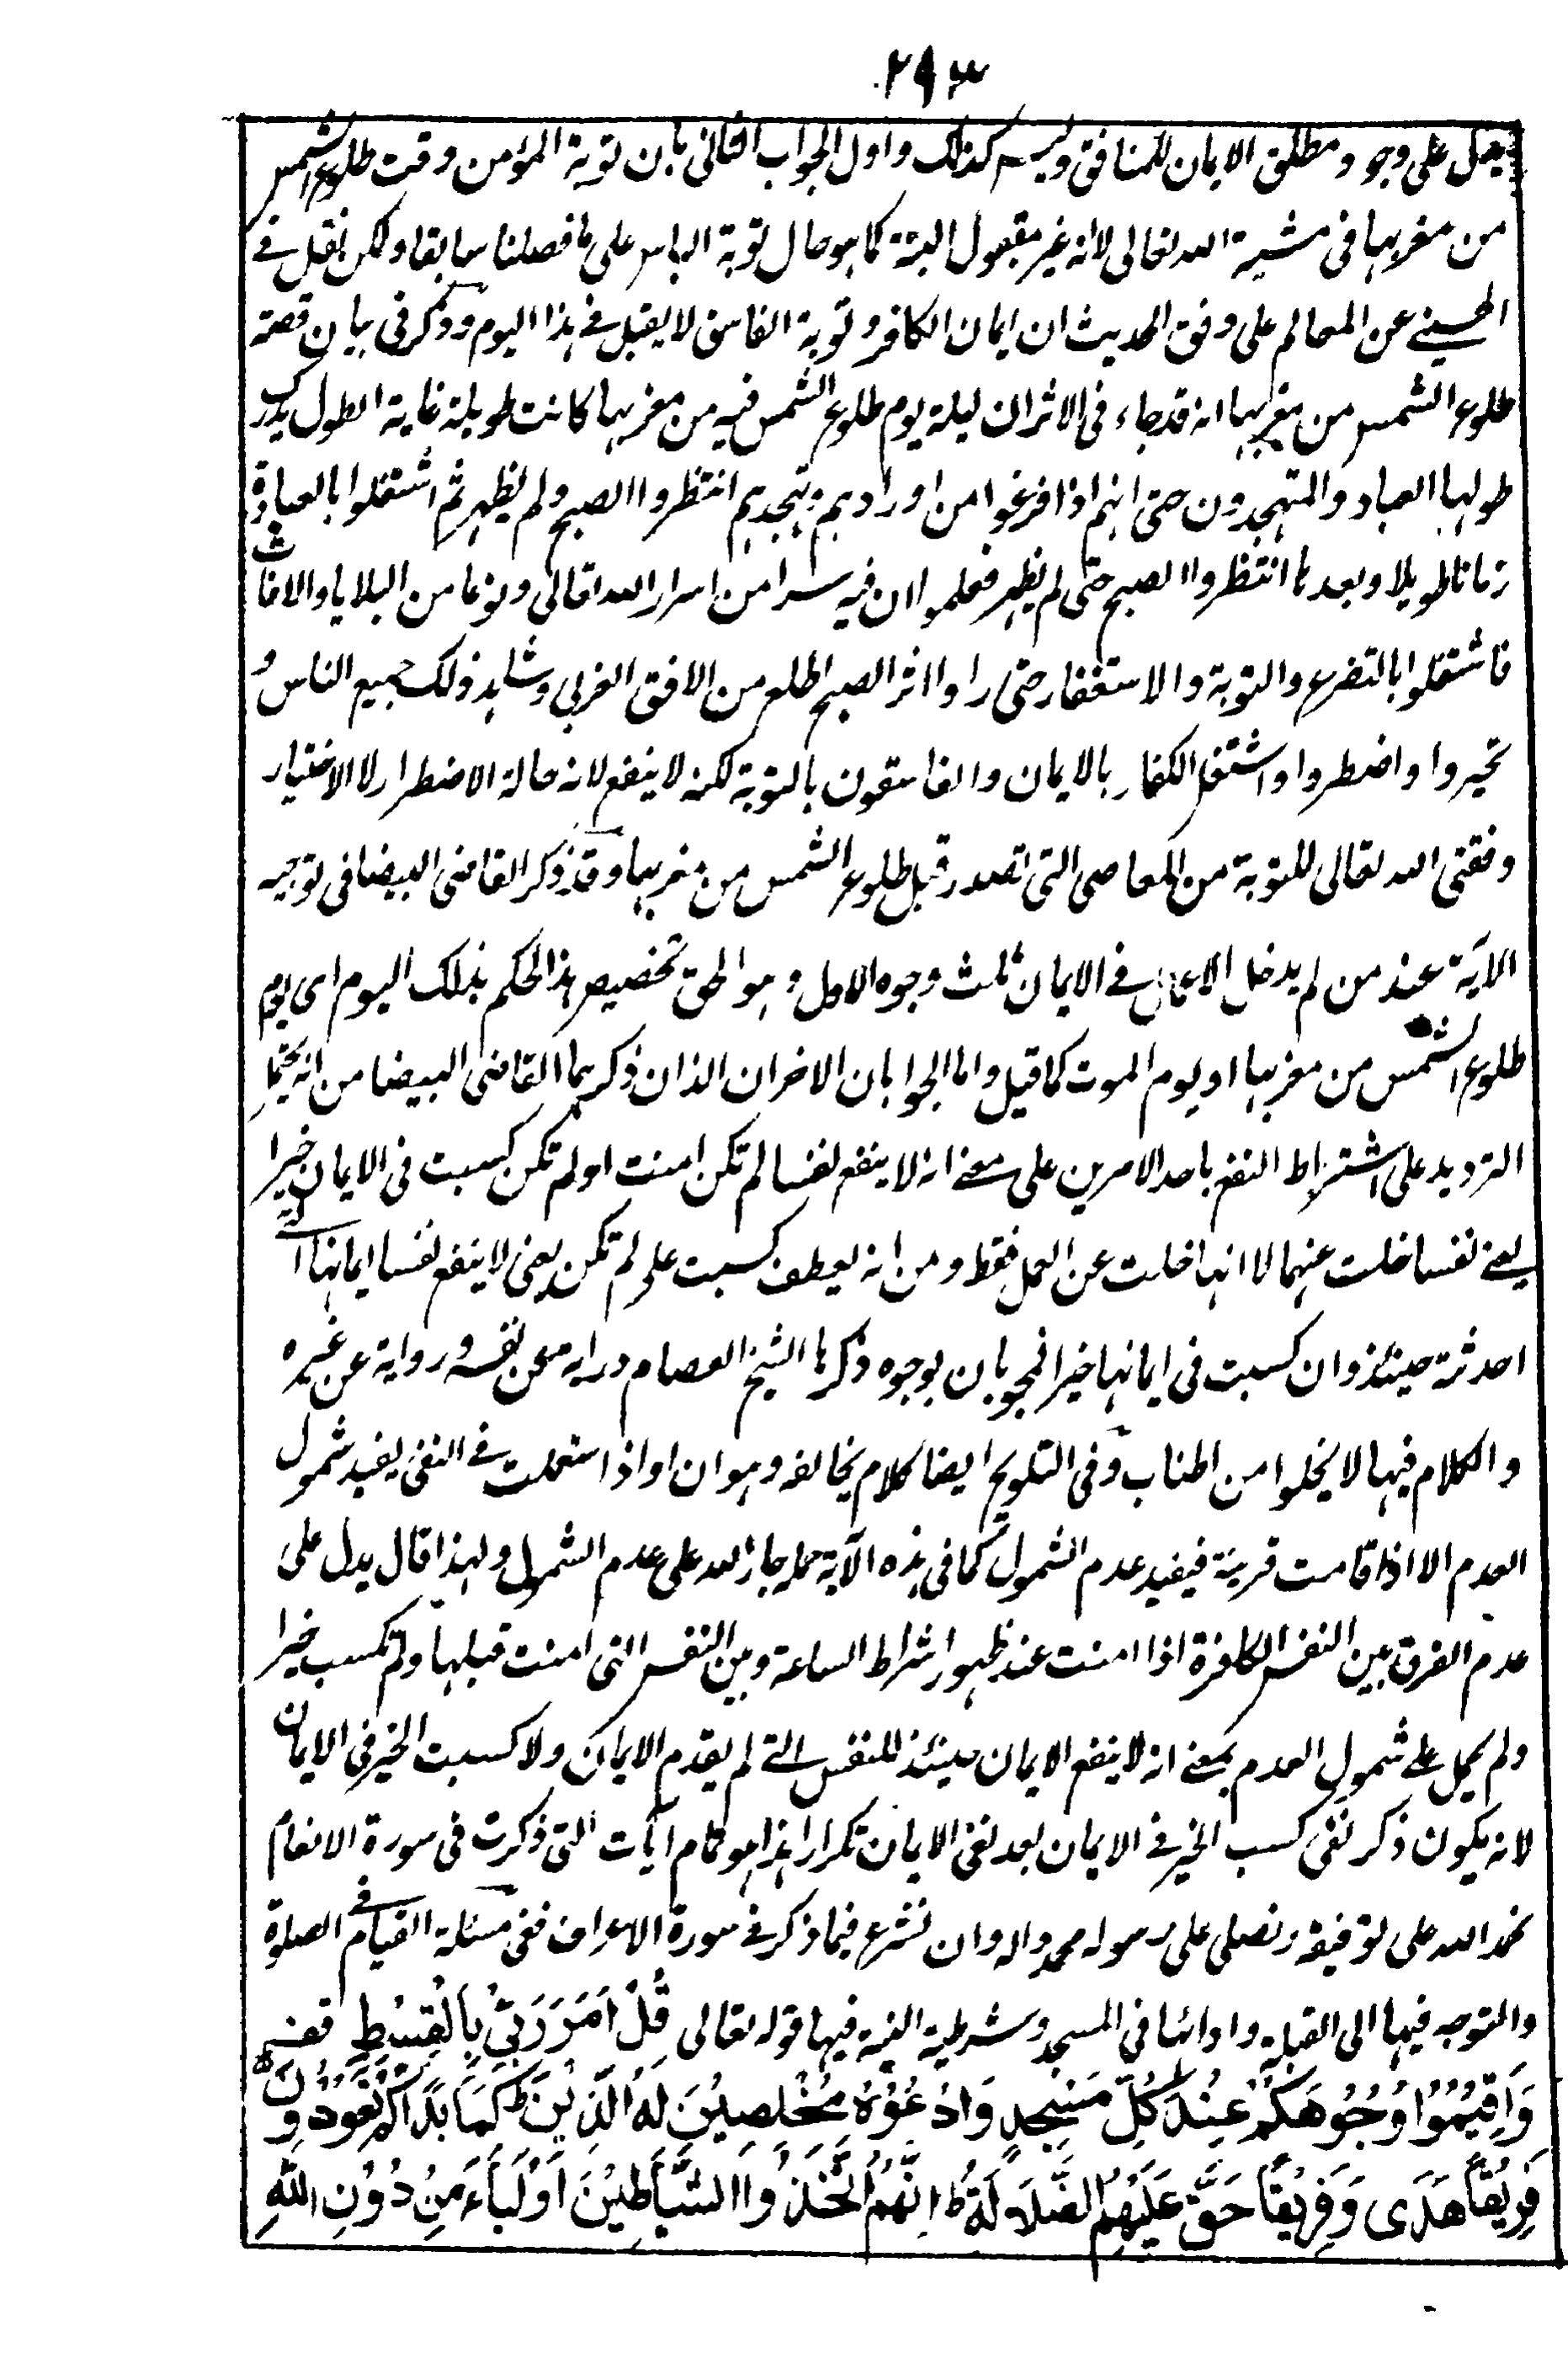 ٢٩٣
يدل على وجود مطلق الايمان للمنافق وليس كذلك واول الجواب الثانى بان توبة المؤمن وقت طلوع الشمس
من مغربها فى مشية الله تعالى لانه غير مقبول البتة كما هو حال توبة الباس على ما فصلنا سابقا ولكن نقل فى
الحسينى عن المعالم على وفق الحديث ان ايمان الكافر وتوبة الفاسق لا يقبل فى هذا اليوم وذكر فى بيان قصة
طلوع الشمس من مغربها انه قد جاء فى الاثر ان ليلة يوم طلوع الشمس فيه من مغربها كانت طويلة غاية الطول يدرك
طولها العباد والمتهجدون حتى انهم اذا فرغوا من اورادهم وتهجدهم انتظروا الصبح ولم يظهر ثم اشتغلوا بالعبادة
زمانا طويلا وبعد ما انتظروا الصبح حتى لم يظهر فعلموا ان فيه سرا من اسرار الله تعالى ونوعا من البلايا والافات
فاشتغلوا بالتضرع والتوبة والاستغفار حتى راوا اثر الصبح اطلع من الافق الغربى وشاهد ذلك جميع الناس و
تحيروا واضطروا واشتغل الكفار بالايمان والفاسقون بالتوبة لكنه لا ينفع لانه حالة الاضطرار لا الاختيار
وفقنى الله تعالى للتوبة من المعاصى التى تصدر قبل طلوع الشمس من مغربها وقد ذكر القاضى البيضا فى توجيه
الآية عند من لم يدخل الاعمال فى الايمان ثلث وجوه الاول وهو الحق تخصيص هذا الحكم بذلك اليوم اى يوم
طلوع الشمس من مغربها او يوم الموت كما قيل واما الجوابان الاخران الذان ذكرهما القاضى البيضا من انه يحتمل
الترديد على اشتراط النفع باحد الامرين على معنى انه لا ينفع نفسا لم تكن امنت او لم تكن كسبت فى الايمان خيرا
يعنى نفسا خلت عنهما لا انها خلت عن العمل فقط ومن انه يعطف كسبت على لم تكن يعنى لا ينفع نفسا ايمانها الذى
احدثه حينئذ وان كسبت فى ايمانها خيرا فمجوبان بوجوه ذكرها الشيخ العصام دراية عن نفسه ورواية عن غيره
والكلام فيها لا يخلوا من اطناب وفى التلويح ايضا كلام يخالفه وهو ان او اذا استعملت فى النفى يفيد شمول
العدم الا اذا قامت قرينة فيفيد عدم الشمول كما فى هذه الآية حمله جار الله على عدم الشمول ولهذا قال يدل على
عدم الفرق بين النفس الكافرة اذا امنت عند ظهور اشراط الساعة وبين النفس التى امنت قبلها ولم تكسب خيرا
ولم يحمل على شمول العدم بمعنى انه لا ينفع الايمان حينئذ للنفس التى لم يقدم الايمان ولا كسبت الخير فى الايمان
لانه يكون ذكر نفى كسب الخير فى الايمان بعد نفى الايمان تكرارا هذا هو تمام آيات التى ذكرت فى سورة الانعام
نحمد الله على توفيقه ونصلى على رسوله محمد واله وان نشرع فيما ذكر فى سورة الاعراف ففى مسئلة القيام فى الصلوة
والتوجه فيها الى القبلة وادائها فى المسجد وشرطية النية فيها قوله تعالى قُلْ اَمَرَ رَبِّىْ بِالْقِسْطِ قف
وَاَقِيْمُوْا وُجُوْهَكُمْ عِنْدَ كُلِّ مَسْجِدٍ وَّادْعُوْهُ مُخْلِصِيْنَ لَهُ الدِّيْنَ ط كَمَا بَدَاَكُمْ تَعُوْدُوْنَ
فَرِيْقًا هَدٰى وَفَرِيْقًا حَقَّ عَلَيْهِمُ الضَّلَالَةُ ط اِنَّهُمُ اتَّخَذُوا الشَّيَاطِيْنَ اَوْلِيَآءَ مِنْ دُوْنِ اللهِ